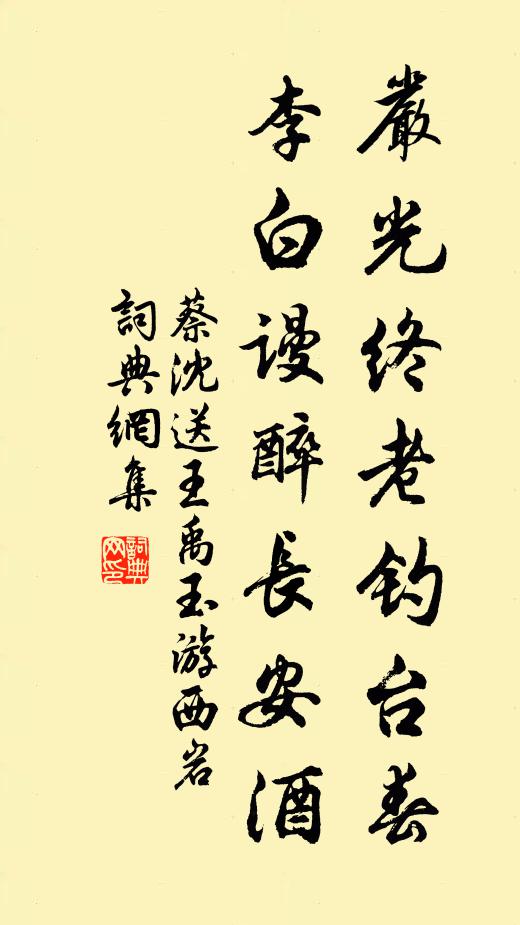 嚴光终老钓台春
李白谩醉長安酒
蔡沈送王禹玉游西岩
詞典網集
詞典网印